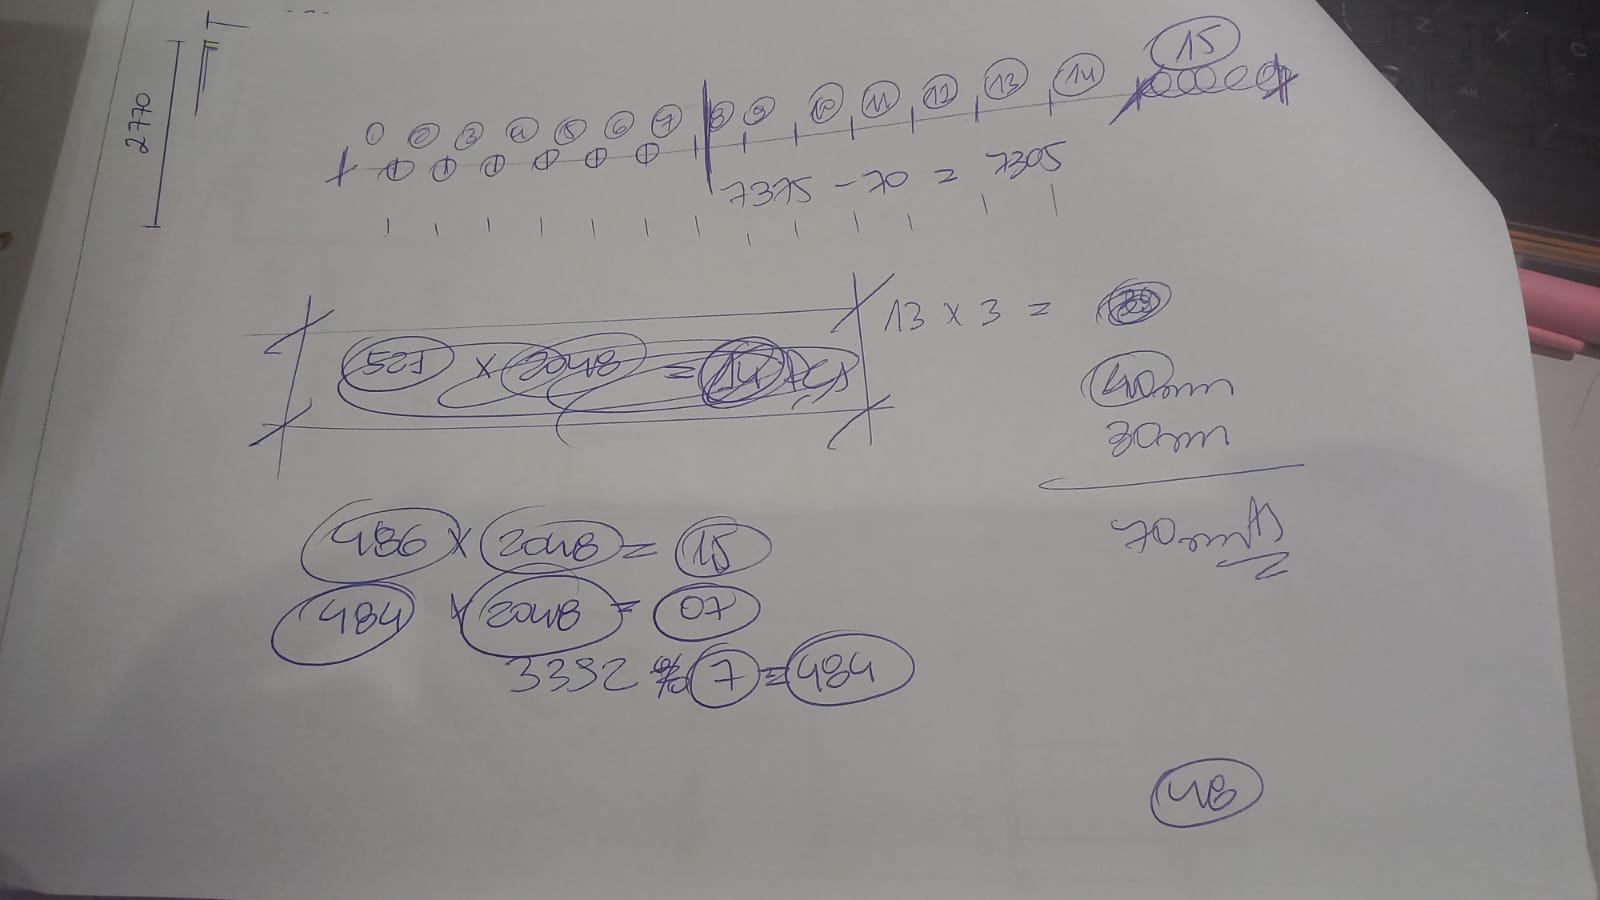 2770
15
1 2 3 4 5 6 7 8 9 10 11 12 13 14
1 1 1 1 1 1
7375 - 70 = 7305
13 x 3 =
521 x 2048 = 14 PCS
40mm
30mm
70mm
486 x 2048 = 15
484 x 2048 = 07
3392 % 7 = 484
48